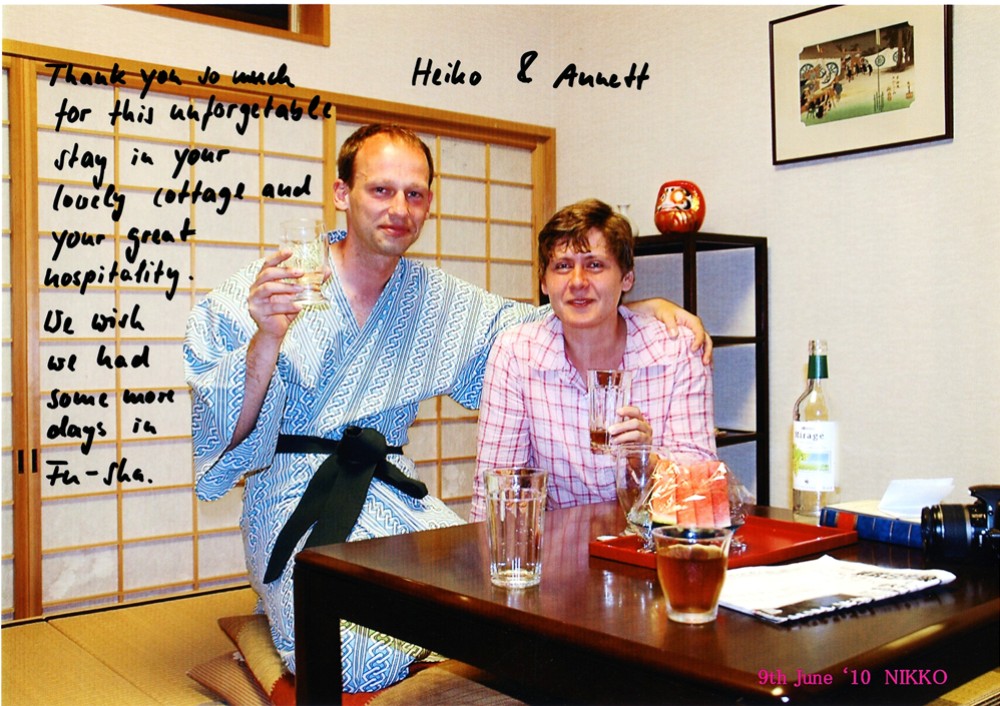 Thank you so much
for this unforgetable
stay in your
lovely cottage and
your great
hospitality.
We wish
we had
some more
days in
Fu-sha.
Heiko & Annett
Mirage
9th June ‘10 NIKKO